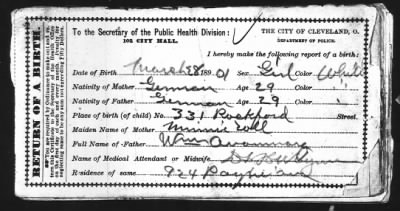 RETURN OF A BIRTH.
To the Secretary of the Public Health Division:
102 CITY HALL.
THE CITY OF CLEVELAND, O.
DEPARTMENT OF POLICE.
I hereby make the following report of a birth:
Date of Birth March 28 189 01 Sex Girl Color White
Nativity of Mother German Age 29
Nativity of Father German Age 29 Color
Place of birth (of child) No. 331 Rockford Street.
Maiden Name of Mother Minnie
Full Name of Father Wm
Name of Medical Attendant or Midwife,
Residence of same 924 Payne Ave